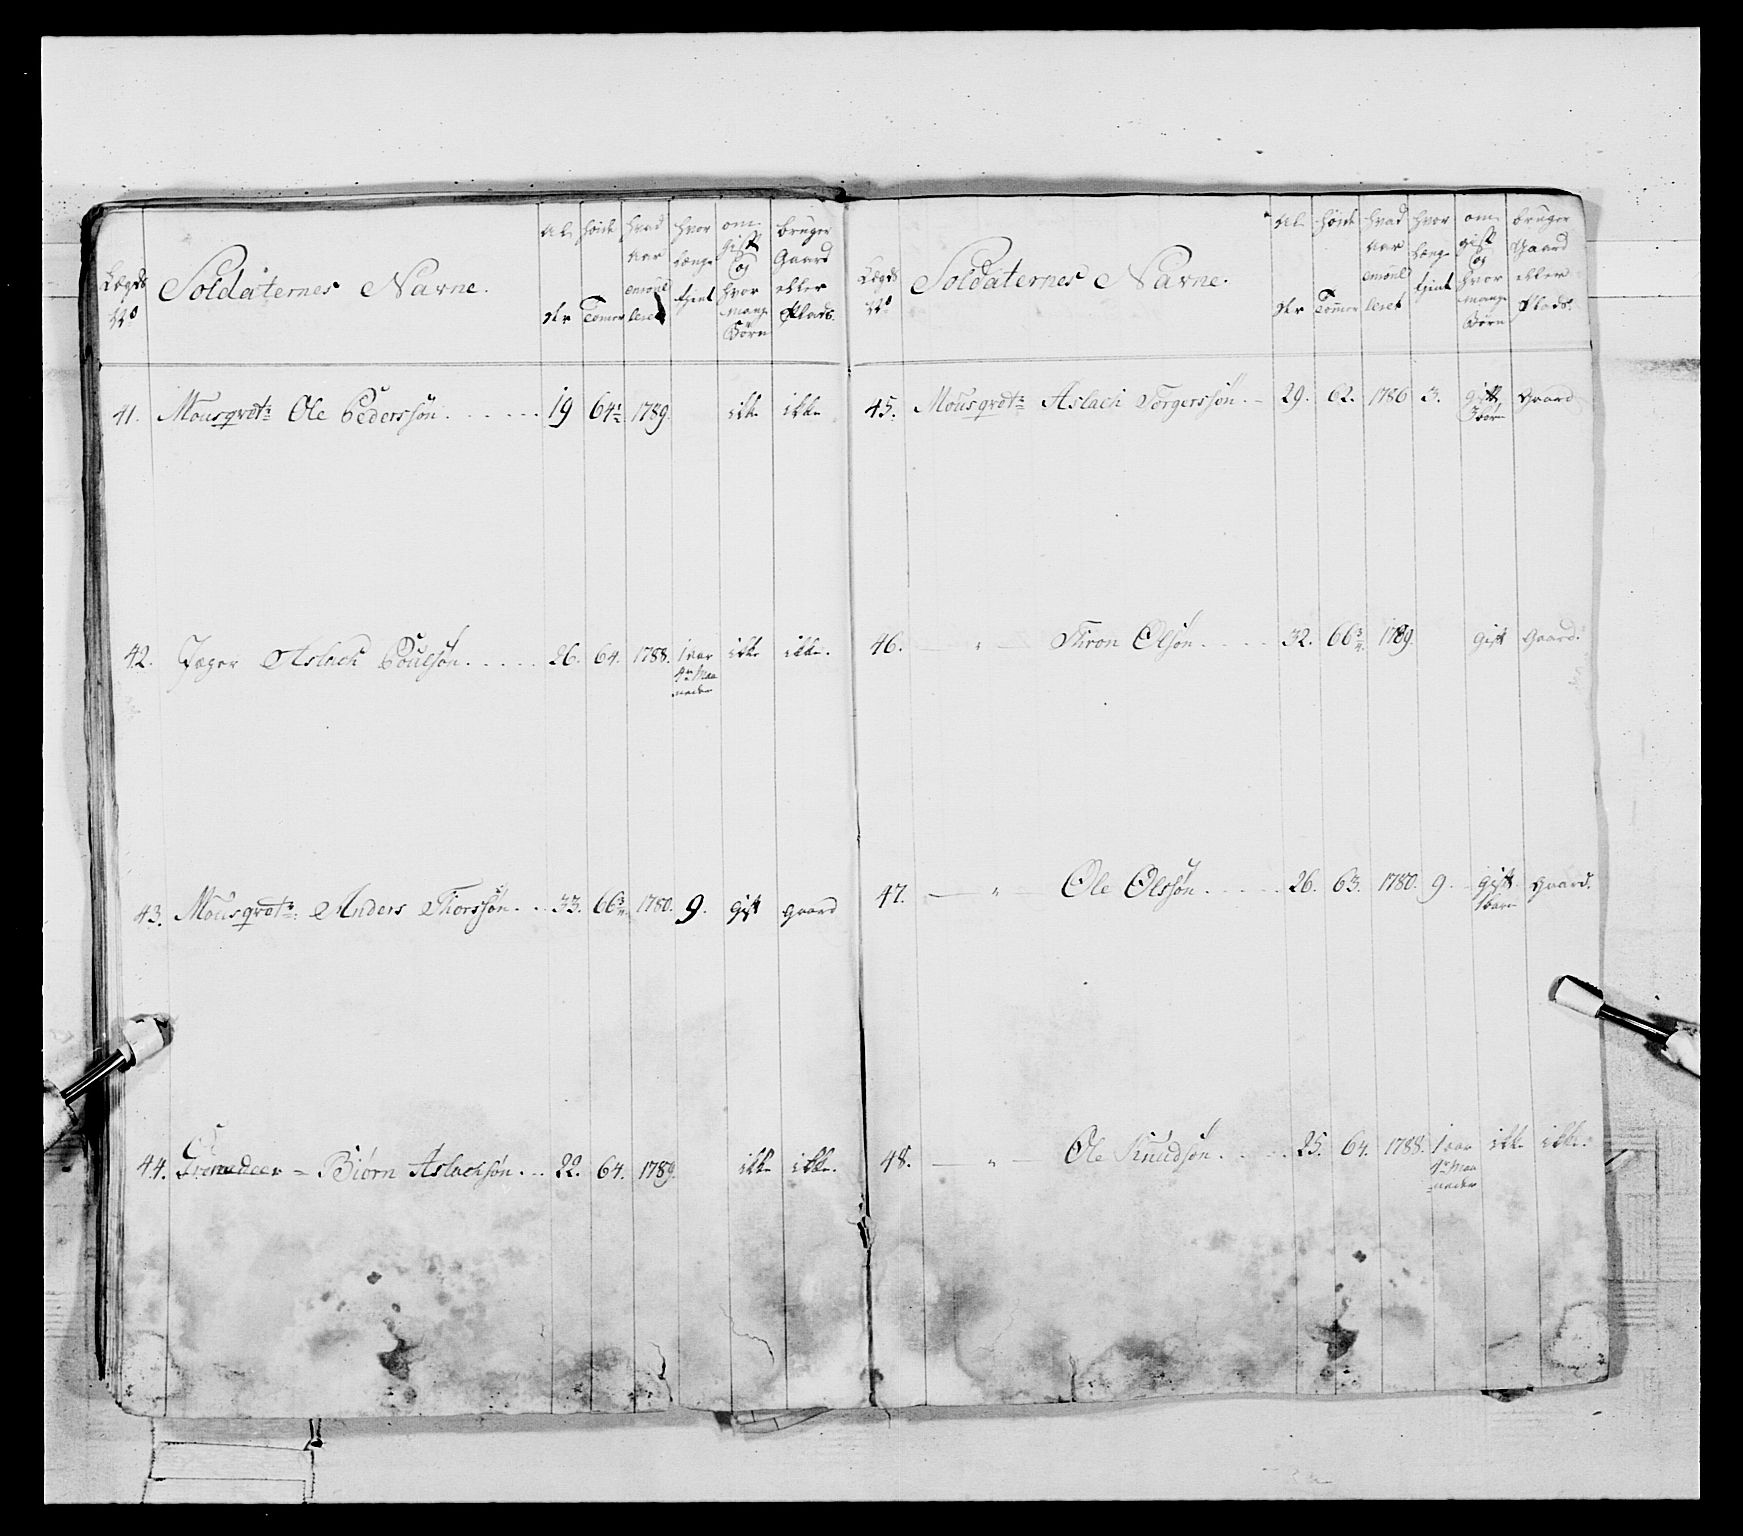 Lægds No
Soldaternes Navne.
Al der
høide Tommer
hvad aar enroulleret
hvor længe tjent
om gift og hvor mange Børn
bruger Gaard eller Plads.
41. Mousqvetr: Ole Pederssøn. 19 64½ 1789. ikke ikke
42. Jæger Aslach Poulsøn. 26. 64. 1788. 1 aar ikke ikke.
4re Maa
neder
43. Mousqvetr: Anders Thorssøn. 33. 66¾ 1780. 9. gift gaard
44. Grenadeer – Biørn Aslachsøn. 22. 64. 1789. ikke ikke.
Lægds No
Soldaternes Navne.
Al der
høide Tommer
hvad aar enroulleret
hvor længe tjent
om gift og hvor mange Børn
bruger Gaard eller Plads.
45. Mousqvetr: Aslach Torgerssøn. 29. 62. 1786 3. Gift gaard
3 børn
46. — " — Thron Olsøn. 32. 66¾ 1789. gift gaard.
47. — " — Ole Olssøn. 26. 63. 1780. 9. gift gaard.
1 barn
48. — " — Ole Knudsøn. 25. 64. 1788. 1 aar ikke ikke.
4re Maa
neder